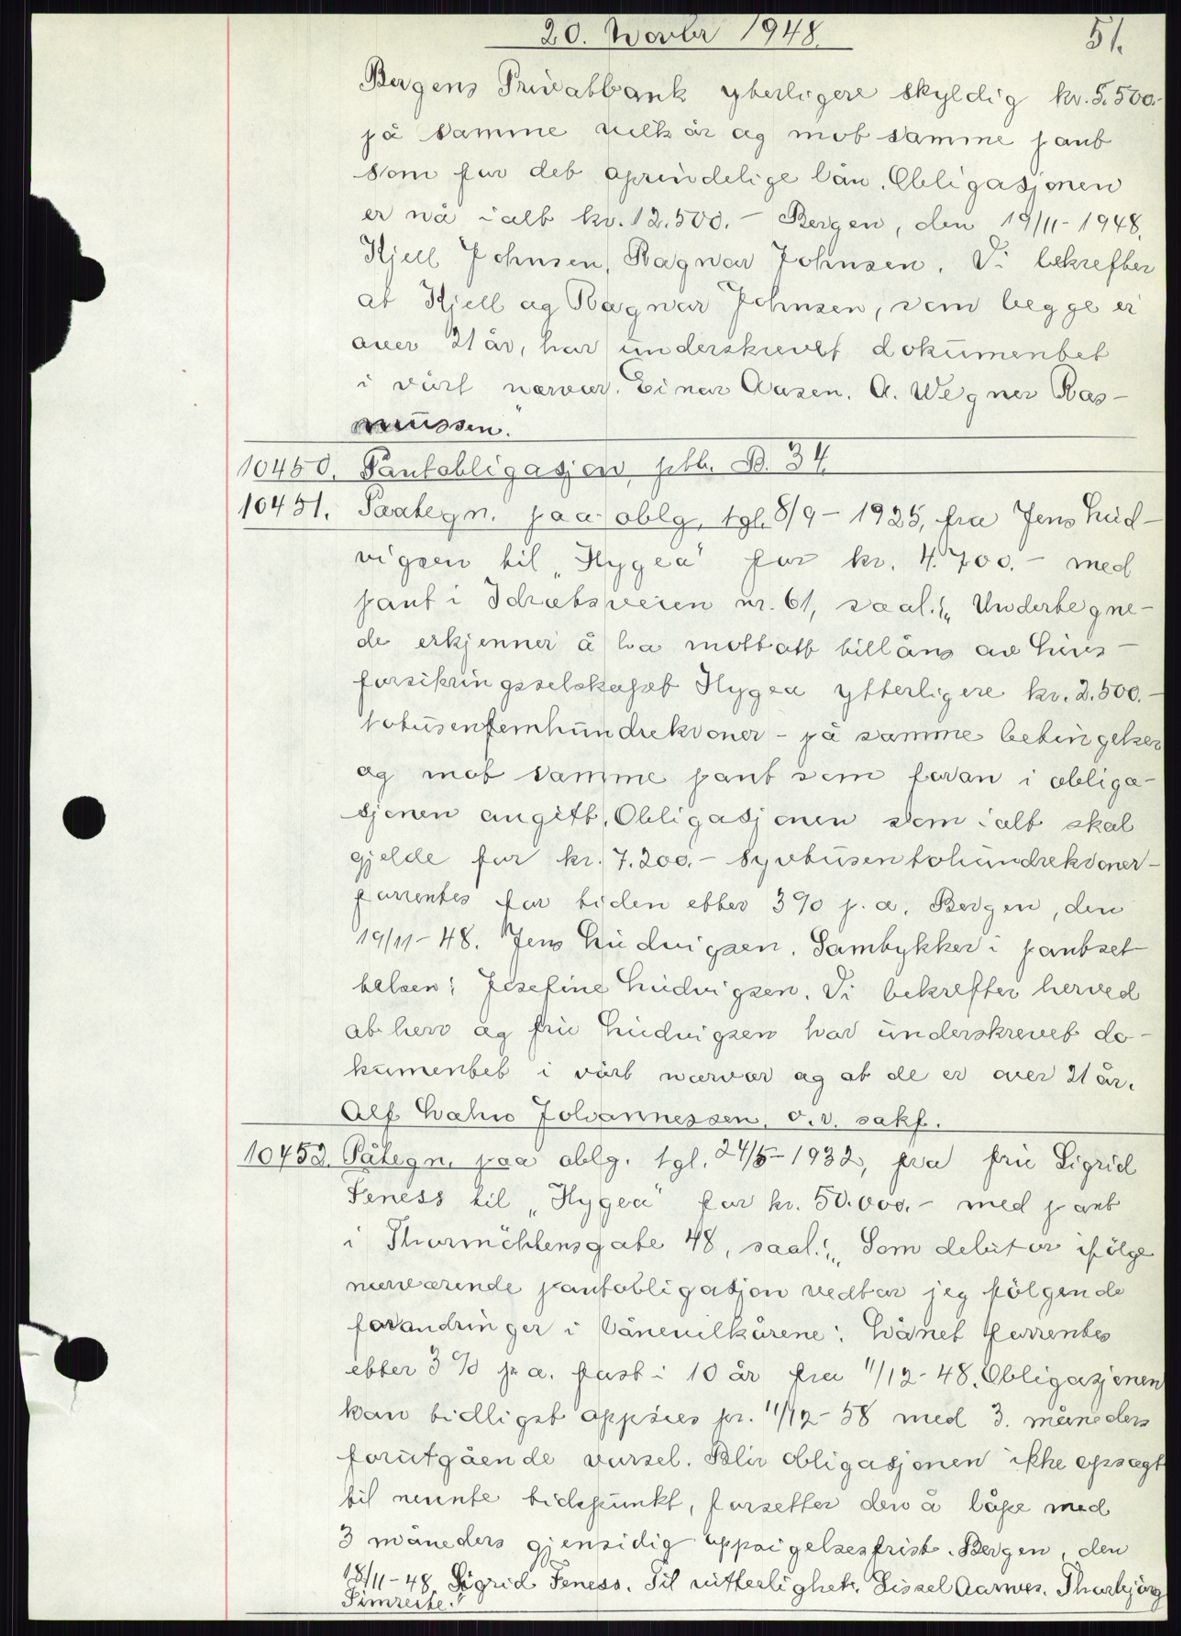 20. Novbr 1948.
51.
Bergens Privatbank ytterligere skyldig kr. 5.500.-
på samme vilkår og mot samme pant
som for det oprindelige lån. Obligasjonen
er nå ialt kr. 12.500.- Bergen, den 19/11-1948.
Kjell Johnsen, Ragnar Johnsen. Vi bekrefter
at Kjell og Ragnar Johnsen, som begge er
over 21 år, har underskrevet dokumentet
i vårt nærvær. Einar Aasen. A. Wegner Ras-
mussen."
10450. Pantobligasjon, ptb. B. 34
10451. Paategn. paa oblg. tgl. 8/9-1925, fra Jens Lud-
vigsen til "Hygea" for kr. 4.700.- med
pant i Idrætsveien nr. 61, saal.: "Undertegne-
de erkjenner å ha mottatt tillåns av Livs-
forsikringsselskapet Hygea ytterligere kr. 2.500.-
totusenfemhundrekroner - på samme betingelser
og mot samme pant som foran i obliga-
sjonen angitt. Obligasjonen som ialt skal
gjelde for kr. 7.200.- syvtusentohundrekroner-
forrentes for tiden etter 3% p.a. Bergen, den
19/11-48. Jens Ludvigsen. Samtykker i pantset
telsen: Josefine Ludvigsen. Vi bekrefter herved
at herr og fru Ludvigsen har underskrevet do-
kumentet i vårt nærvær og at de er over 21 år.
Alf Johannessen, o.r. sakf.
10452. Påtegn. paa oblg. tgl. 24/5-1932, fra fru Sigrid
Feness til "Hygea" for kr. 50.000.- med pant
i Thormöhlensgate 48, saal.: "Som debitor ifölge
nærværende pantobligasjon vedtar jeg fölgende
forandringer i lånevilkårene: Lånet forrentes
etter 3% p.a. fast i 10 år fra 11/12-48. Obligasjonen
kan tidligst oppsies pr. 11/12-58 med 3. måneders
forutgående varsel. Blir obligasjonen ikke opsagt
til nevnte tidspunkt, forsetter den å löpe med
3 måneders gjensidig oppsigelsesfrist. Bergen, den
18/11-48. Sigrid Feness. Til vitterlighet: Sissel Aarnes. Thorbjörg
Simreite."